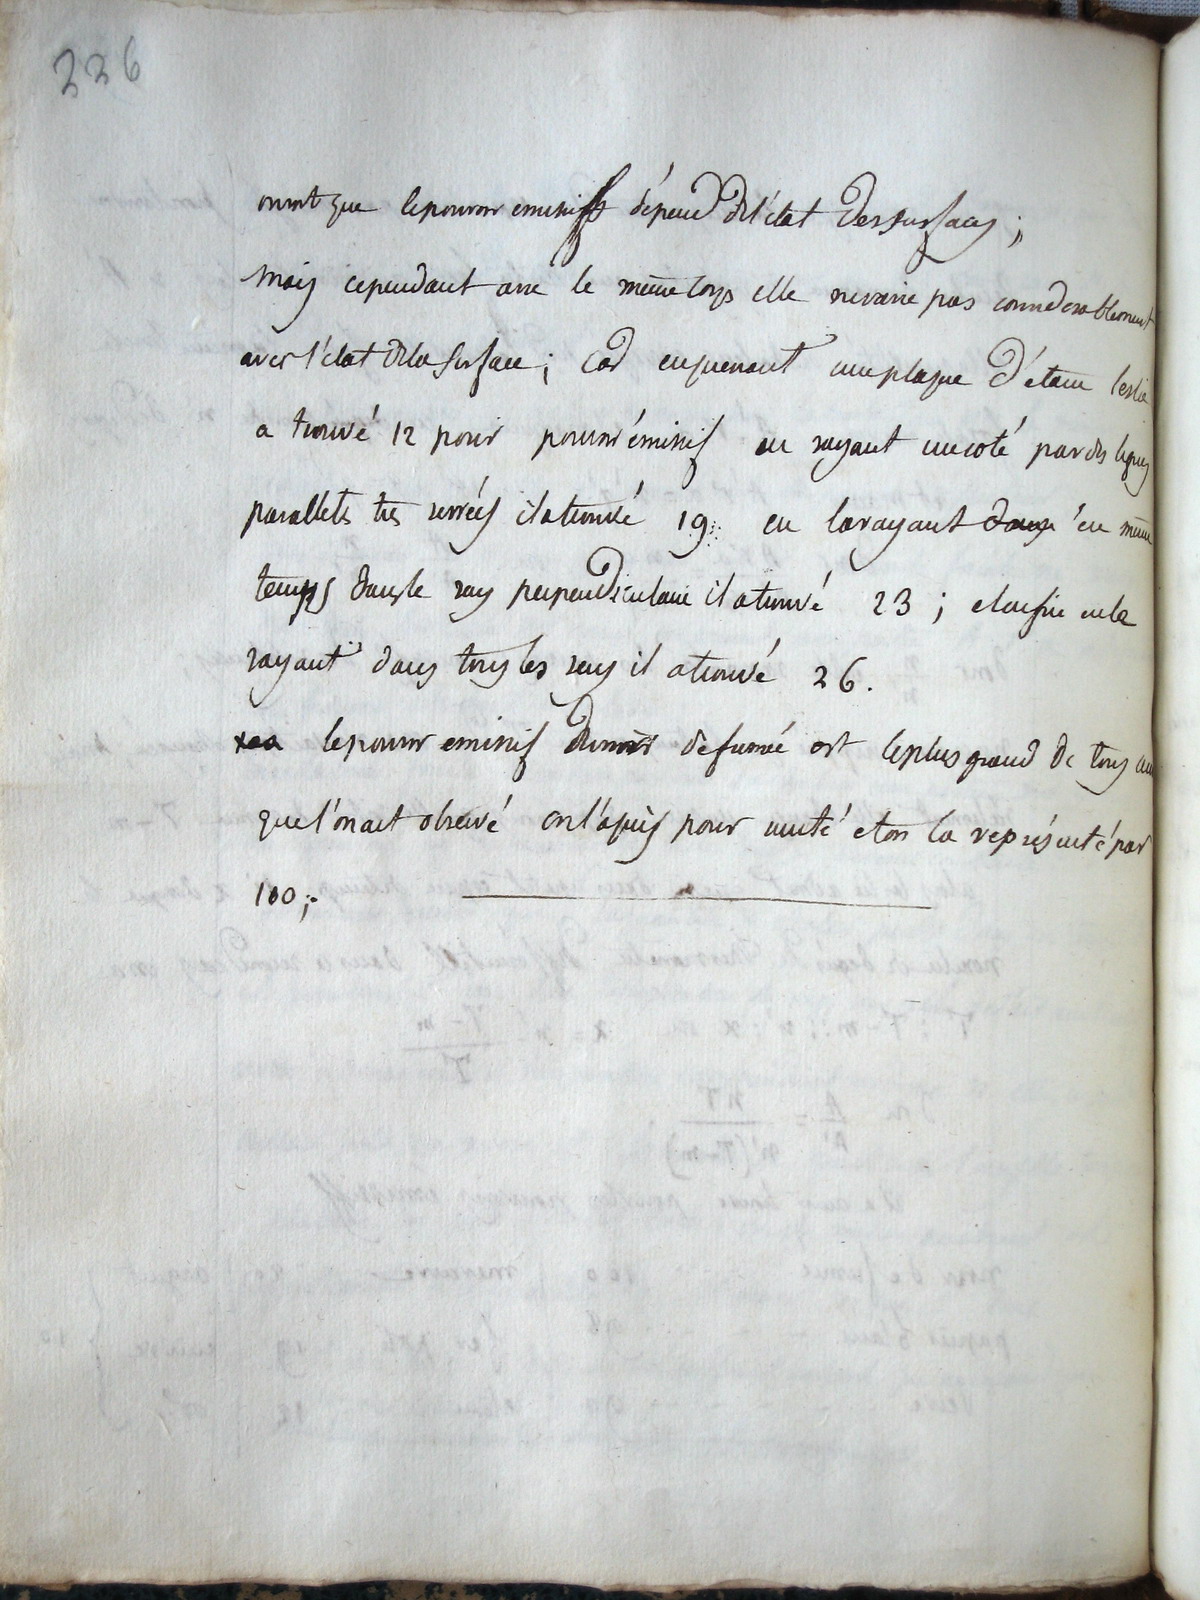 226
on voit que le pouvoir emissif dépend de l'état des surfaces ;
mais cependant avec le même corps elle ne varie pas considerablement
avec l'état de la surface ; Cad en prenant une plaque d'étain leslie
a trouvé 12 pour pouvoir émissif en rayant un coté par des lignes
paralleles tres serrées il a trouvé 19 en la rayant dans en même
temps dans le sens perpendiculaire il a trouvé 23 ; et enfin en la
rayant dans tous les sens il a trouvé 26.
le pouvoir emissif du noir de fumée est le plus grand de tous ceux
que l'on ait observé on l'a pris pour unité et on la représenté par
100 ;